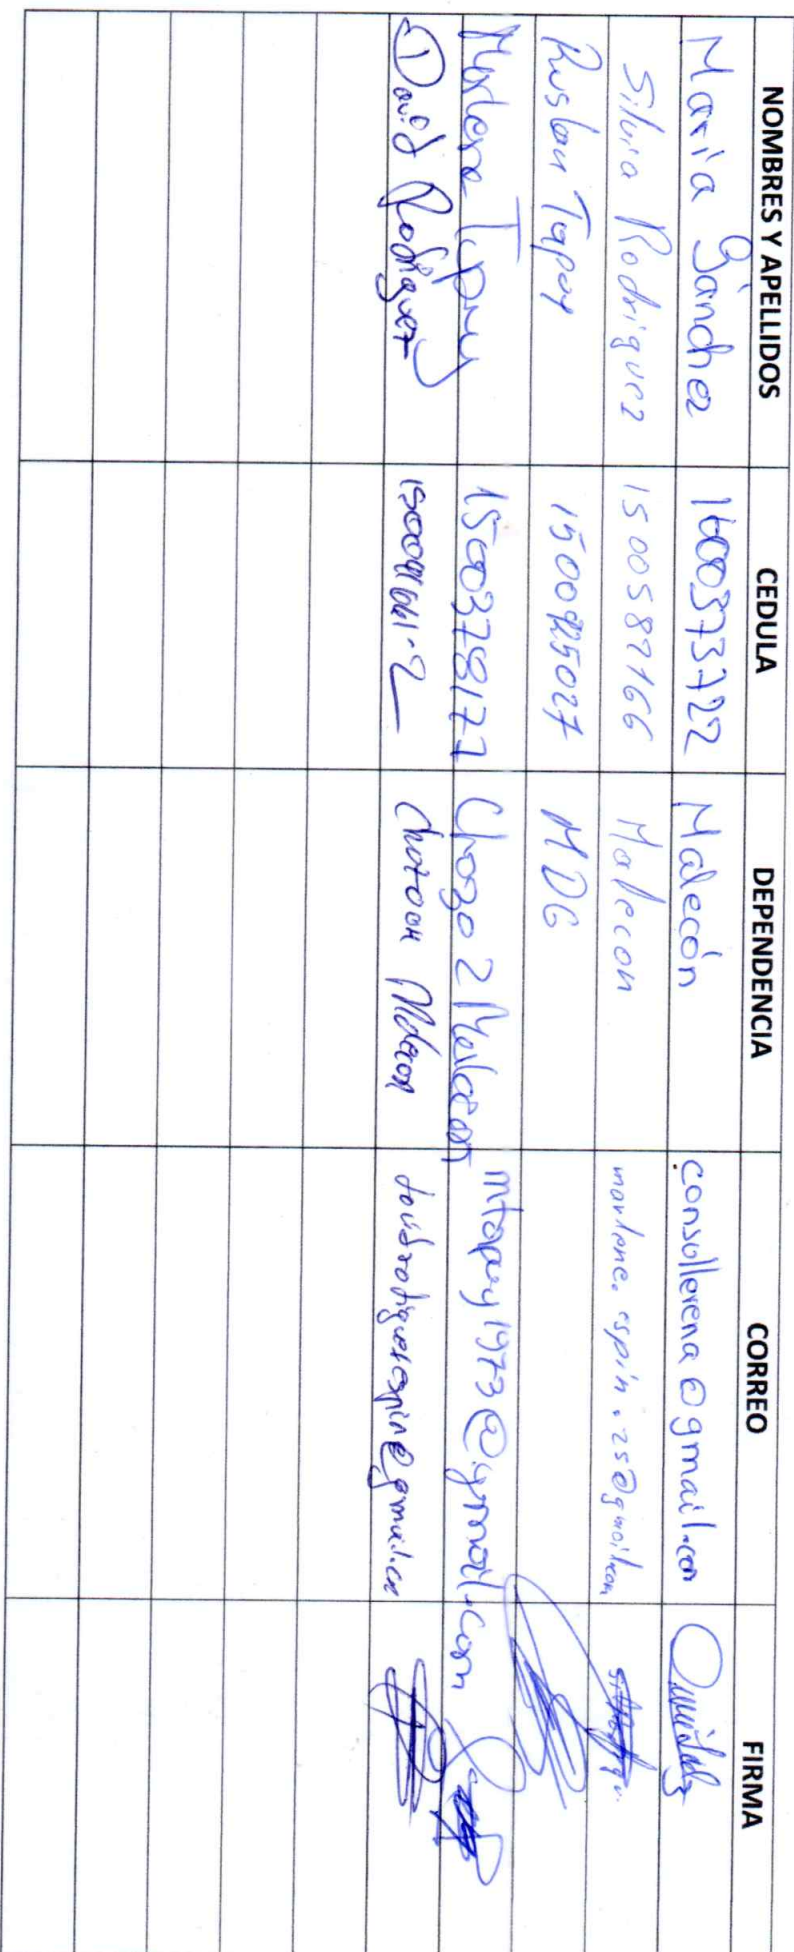 NOMBRES Y APELLIDOS CEDULA DEPENDENCIA CORREO FIRMA
María Sánchez 1600373722 Malecón consollerena@gmail.com
Silvia Rodriguez 1500587166 Malecon marlene.espin.25@gmail.com
Ruslan Tapuy 1500925027 MDG
Marlene Tapuy 1500378177 2 Malecon mtapuy1973@gmail.com
David Rodriguez Malecon davidrodriguezespin@gmail.com